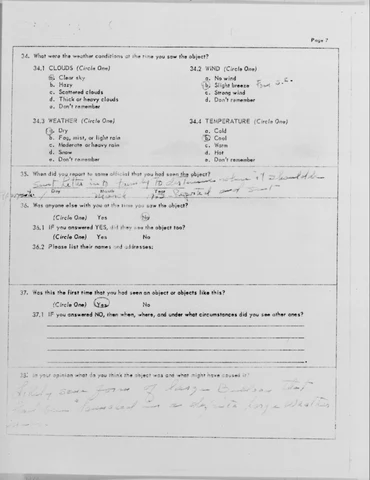 Page 7
34. What were the weather conditions at the time you saw the object?
34.1 CLOUDS (Circle One)
a. Clear sky
b. Hazy
c. Scattered clouds
d. Thick or heavy clouds
e. Don't remember
34.2 WIND (Circle One)
a. No wind
b. Slight breeze
c. Strong wind
d. Don't remember
34.3 WEATHER (Circle One)
a. Dry
b. Fog, mist, or light rain
c. Moderate or heavy rain
d. Snow
e. Don't remember
34.4 TEMPERATURE (Circle One)
a. Cold
b. Cool
c. Warm
d. Hot
e. Don't remember
35. When did you report to some official that you had seen the object?
Day Month Year
36. Was anyone else with you at the time you saw the object?
(Circle One) Yes No
36.1 IF you answered YES, did they see the object too?
(Circle One) Yes No
36.2 Please list their names and addresses:
37. Was this the first time that you had seen an object or objects like this?
(Circle One) Yes No
37.1 IF you answered NO, then when, where, and under what circumstances did you see other ones?
38. In your opinion what do you think the object was and what might have caused it?
some form of large
in a large